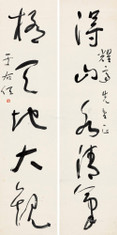 得山水清氣
極天地大觀
先生正
于右任